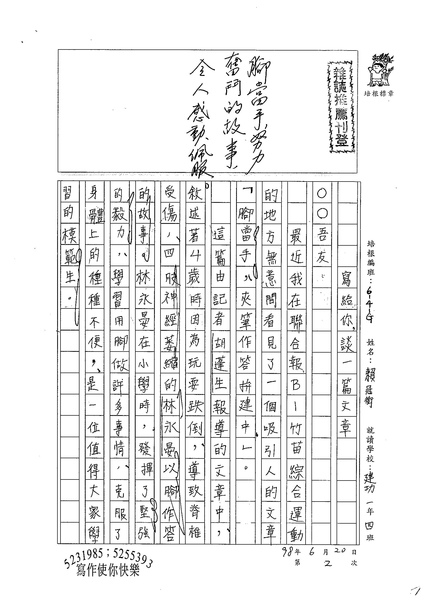 培根標章
雜誌推薦刊登
腳當手努力
奮鬥的故事
令人感動佩服
培根編班:6-4-G 姓名:賴 就讀學校:建功 一年四班
寫給你,談一篇文章
○○吾友:
最近我在聯合報B1竹苗綜合運動
的地方無意間看見了一個吸引人的文章
「腳當手,夾筆作答拚建中」。
這篇由記者胡蓬生報導的文章中,
敘述著4歲時因為玩耍跌倒,導致脊椎
受傷,四肢神經萎縮的林永晏以腳作答
的故事。林永晏在小學時,發揮了堅強
的毅力,學習用腳做許多事情,克服了
身體上的種種不便,是一位值得大家學
習的模範生。
98年6月20日
第2次
5231985;5255393
寫作使你快樂